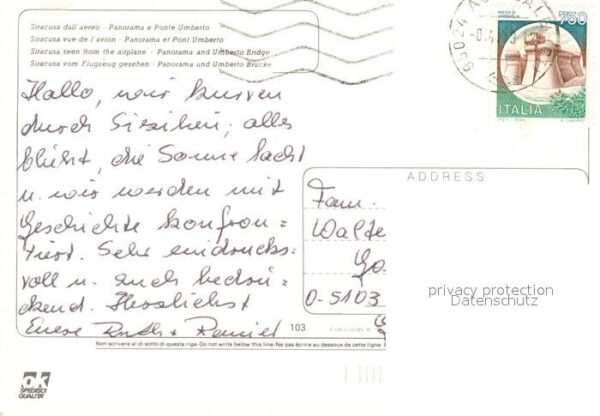 Siracusa dall aereo - Panorama e Ponte Umberto
Siracusa vue de l'avion - Panorama et Pont Umberto
Siracusa seen from the airplane - Panorama and Umberto Bridge
Siracusa vom Flugzeug gesehen - Panorama und Umberto Brücke
Hallo, wir kurven
durch Sizilien; alles
blüht, die Sonne lacht
u. wir werden mit
Geschichte konfron=
tiert. Sehr eindrucks-
voll u. auch bedrü-
ckend. Herzlichst
Euere Ruth + Daniel
95024
ROCCA DI
URBISAGLIA
750
ITALIA
ADDRESS
Fam.
Walte
D-5103
privacy protection
Datenschutz
103
Non scrivere al di sotto di questa riga-Do not write below this line-Ne pas écrire au dessous de cette ligne
ok
SPEDISCI
QUALITÀ